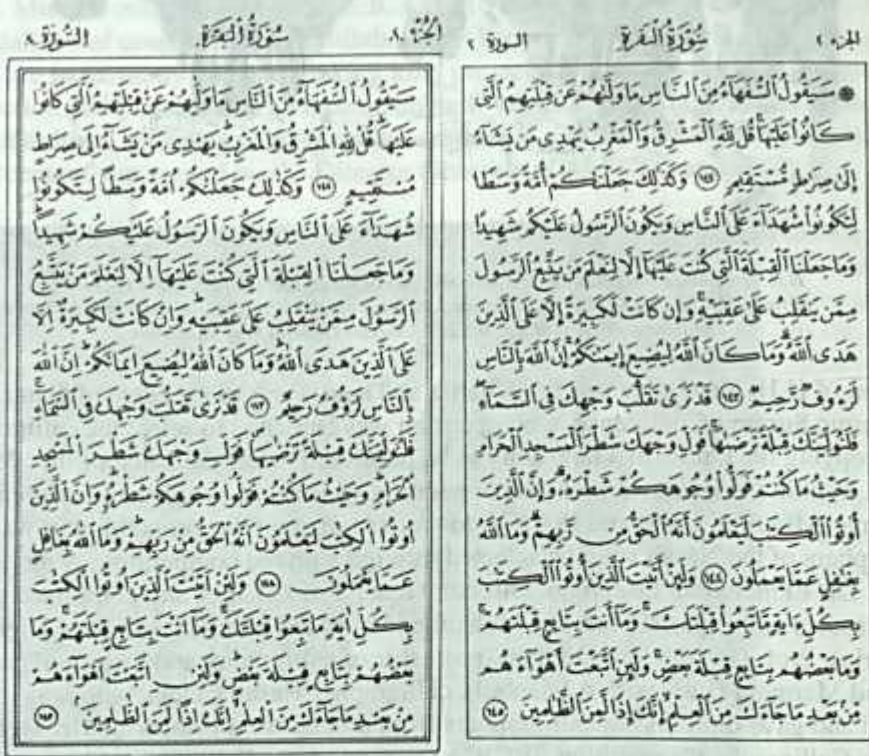 الجزء ٢ سُورَةُ البَقَرَةِ السورة ٢
۞ سَيَقُولُ ٱلسُّفَهَآءُ مِنَ ٱلنَّاسِ مَا وَلَّىٰهُمْ عَن قِبْلَتِهِمُ ٱلَّتِى
كَانُوا۟ عَلَيْهَا ۚ قُل لِّلَّهِ ٱلْمَشْرِقُ وَٱلْمَغْرِبُ يَهْدِى مَن يَشَآءُ
إِلَىٰ صِرَٰطٍ مُّسْتَقِيمٍ ﴿١٤٢﴾ وَكَذَٰلِكَ جَعَلْنَٰكُمْ أُمَّةً وَسَطًا
لِّتَكُونُوا۟ شُهَدَآءَ عَلَى ٱلنَّاسِ وَيَكُونَ ٱلرَّسُولُ عَلَيْكُمْ شَهِيدًا
وَمَا جَعَلْنَا ٱلْقِبْلَةَ ٱلَّتِى كُنتَ عَلَيْهَآ إِلَّا لِنَعْلَمَ مَن يَتَّبِعُ ٱلرَّسُولَ
مِمَّن يَنقَلِبُ عَلَىٰ عَقِبَيْهِ ۚ وَإِن كَانَتْ لَكَبِيرَةً إِلَّا عَلَى ٱلَّذِينَ
هَدَى ٱللَّهُ ۗ وَمَا كَانَ ٱللَّهُ لِيُضِيعَ إِيمَٰنَكُمْ ۚ إِنَّ ٱللَّهَ بِٱلنَّاسِ
لَرَءُوفٌ رَّحِيمٌ ﴿١٤٣﴾ قَدْ نَرَىٰ تَقَلُّبَ وَجْهِكَ فِى ٱلسَّمَآءِ ۖ
فَلَنُوَلِّيَنَّكَ قِبْلَةً تَرْضَىٰهَا ۚ فَوَلِّ وَجْهَكَ شَطْرَ ٱلْمَسْجِدِ ٱلْحَرَامِ ۚ
وَحَيْثُ مَا كُنتُمْ فَوَلُّوا۟ وُجُوهَكُمْ شَطْرَهُۥ ۗ وَإِنَّ ٱلَّذِينَ
أُوتُوا۟ ٱلْكِتَٰبَ لَيَعْلَمُونَ أَنَّهُ ٱلْحَقُّ مِن رَّبِّهِمْ ۗ وَمَا ٱللَّهُ
بِغَٰفِلٍ عَمَّا يَعْمَلُونَ ﴿١٤٤﴾ وَلَئِنْ أَتَيْتَ ٱلَّذِينَ أُوتُوا۟ ٱلْكِتَٰبَ
بِكُلِّ ءَايَةٍ مَّا تَبِعُوا۟ قِبْلَتَكَ ۚ وَمَآ أَنتَ بِتَابِعٍ قِبْلَتَهُمْ ۚ
وَمَا بَعْضُهُم بِتَابِعٍ قِبْلَةَ بَعْضٍ ۚ وَلَئِنِ ٱتَّبَعْتَ أَهْوَآءَهُم
مِّنۢ بَعْدِ مَا جَآءَكَ مِنَ ٱلْعِلْمِ ۙ إِنَّكَ إِذًا لَّمِنَ ٱلظَّٰلِمِينَ ﴿١٤٥﴾
الجُزْءُ ٨٠ سُورَةُ البَقَرَةِ السُّورَةُ ٨
سَيَقُولُ السُّفَهَٓاءُ مِنَ النَّاسِ مَا وَلّٰيهُمْ عَنْ قِبْلَتِهِمُ الَّتٖى كَانُوا
عَلَيْهَاۜ قُلْ لِلّٰهِ الْمَشْرِقُ وَالْمَغْرِبُۜ يَهْدٖى مَنْ يَشَٓاءُ اِلٰى صِرَاطٍ
مُسْتَقٖيمٍ وَكَذٰلِكَ جَعَلْنَاكُمْ اُمَّةً وَسَطًا لِتَكُونُوا
شُهَدَٓاءَ عَلَى النَّاسِ وَيَكُونَ الرَّسُولُ عَلَيْكُمْ شَهٖيدًاۜ
وَمَا جَعَلْنَا الْقِبْلَةَ الَّتٖى كُنْتَ عَلَيْهَٓا اِلَّا لِنَعْلَمَ مَنْ يَتَّبِعُ
الرَّسُولَ مِمَّنْ يَنْقَلِبُ عَلٰى عَقِبَيْهِۜ وَاِنْ كَانَتْ لَكَبٖيرَةً اِلَّا
عَلَى الَّذٖينَ هَدَى اللّٰهُۜ وَمَا كَانَ اللّٰهُ لِيُضٖيعَ اٖيمَانَكُمْۜ اِنَّ اللّٰهَ
بِالنَّاسِ لَرَؤُفٌ رَحٖيمٌ قَدْ نَرٰى تَقَلُّبَ وَجْهِكَ فِى السَّمَٓاءِۚ
فَلَنُوَلِّيَنَّكَ قِبْلَةً تَرْضٰيهَاۖ فَوَلِّ وَجْهَكَ شَطْرَ الْمَسْجِدِ
الْحَرَامِۜ وَحَيْثُ مَا كُنْتُمْ فَوَلُّوا وُجُوهَكُمْ شَطْرَهُۜ وَاِنَّ الَّذٖينَ
اُوتُوا الْكِتٰبَ لَيَعْلَمُونَ اَنَّهُ الْحَقُّ مِنْ رَبِّهِمْۜ وَمَا اللّٰهُ بِغَافِلٍ
عَمَّا يَعْمَلُونَ وَلَئِنْ اَتَيْتَ الَّذٖينَ اُوتُوا الْكِتٰبَ
بِكُلِّ اٰيَةٍ مَا تَبِعُوا قِبْلَتَكَۚ وَمَٓا اَنْتَ بِتَابِعٍ قِبْلَتَهُمْۚ وَمَا
بَعْضُهُمْ بِتَابِعٍ قِبْلَةَ بَعْضٍۜ وَلَئِنِ اتَّبَعْتَ اَهْوَٓاءَهُمْ
مِنْ بَعْدِ مَا جَٓاءَكَ مِنَ الْعِلْمِۙ اِنَّكَ اِذًا لَمِنَ الظَّالِمٖينَۢ